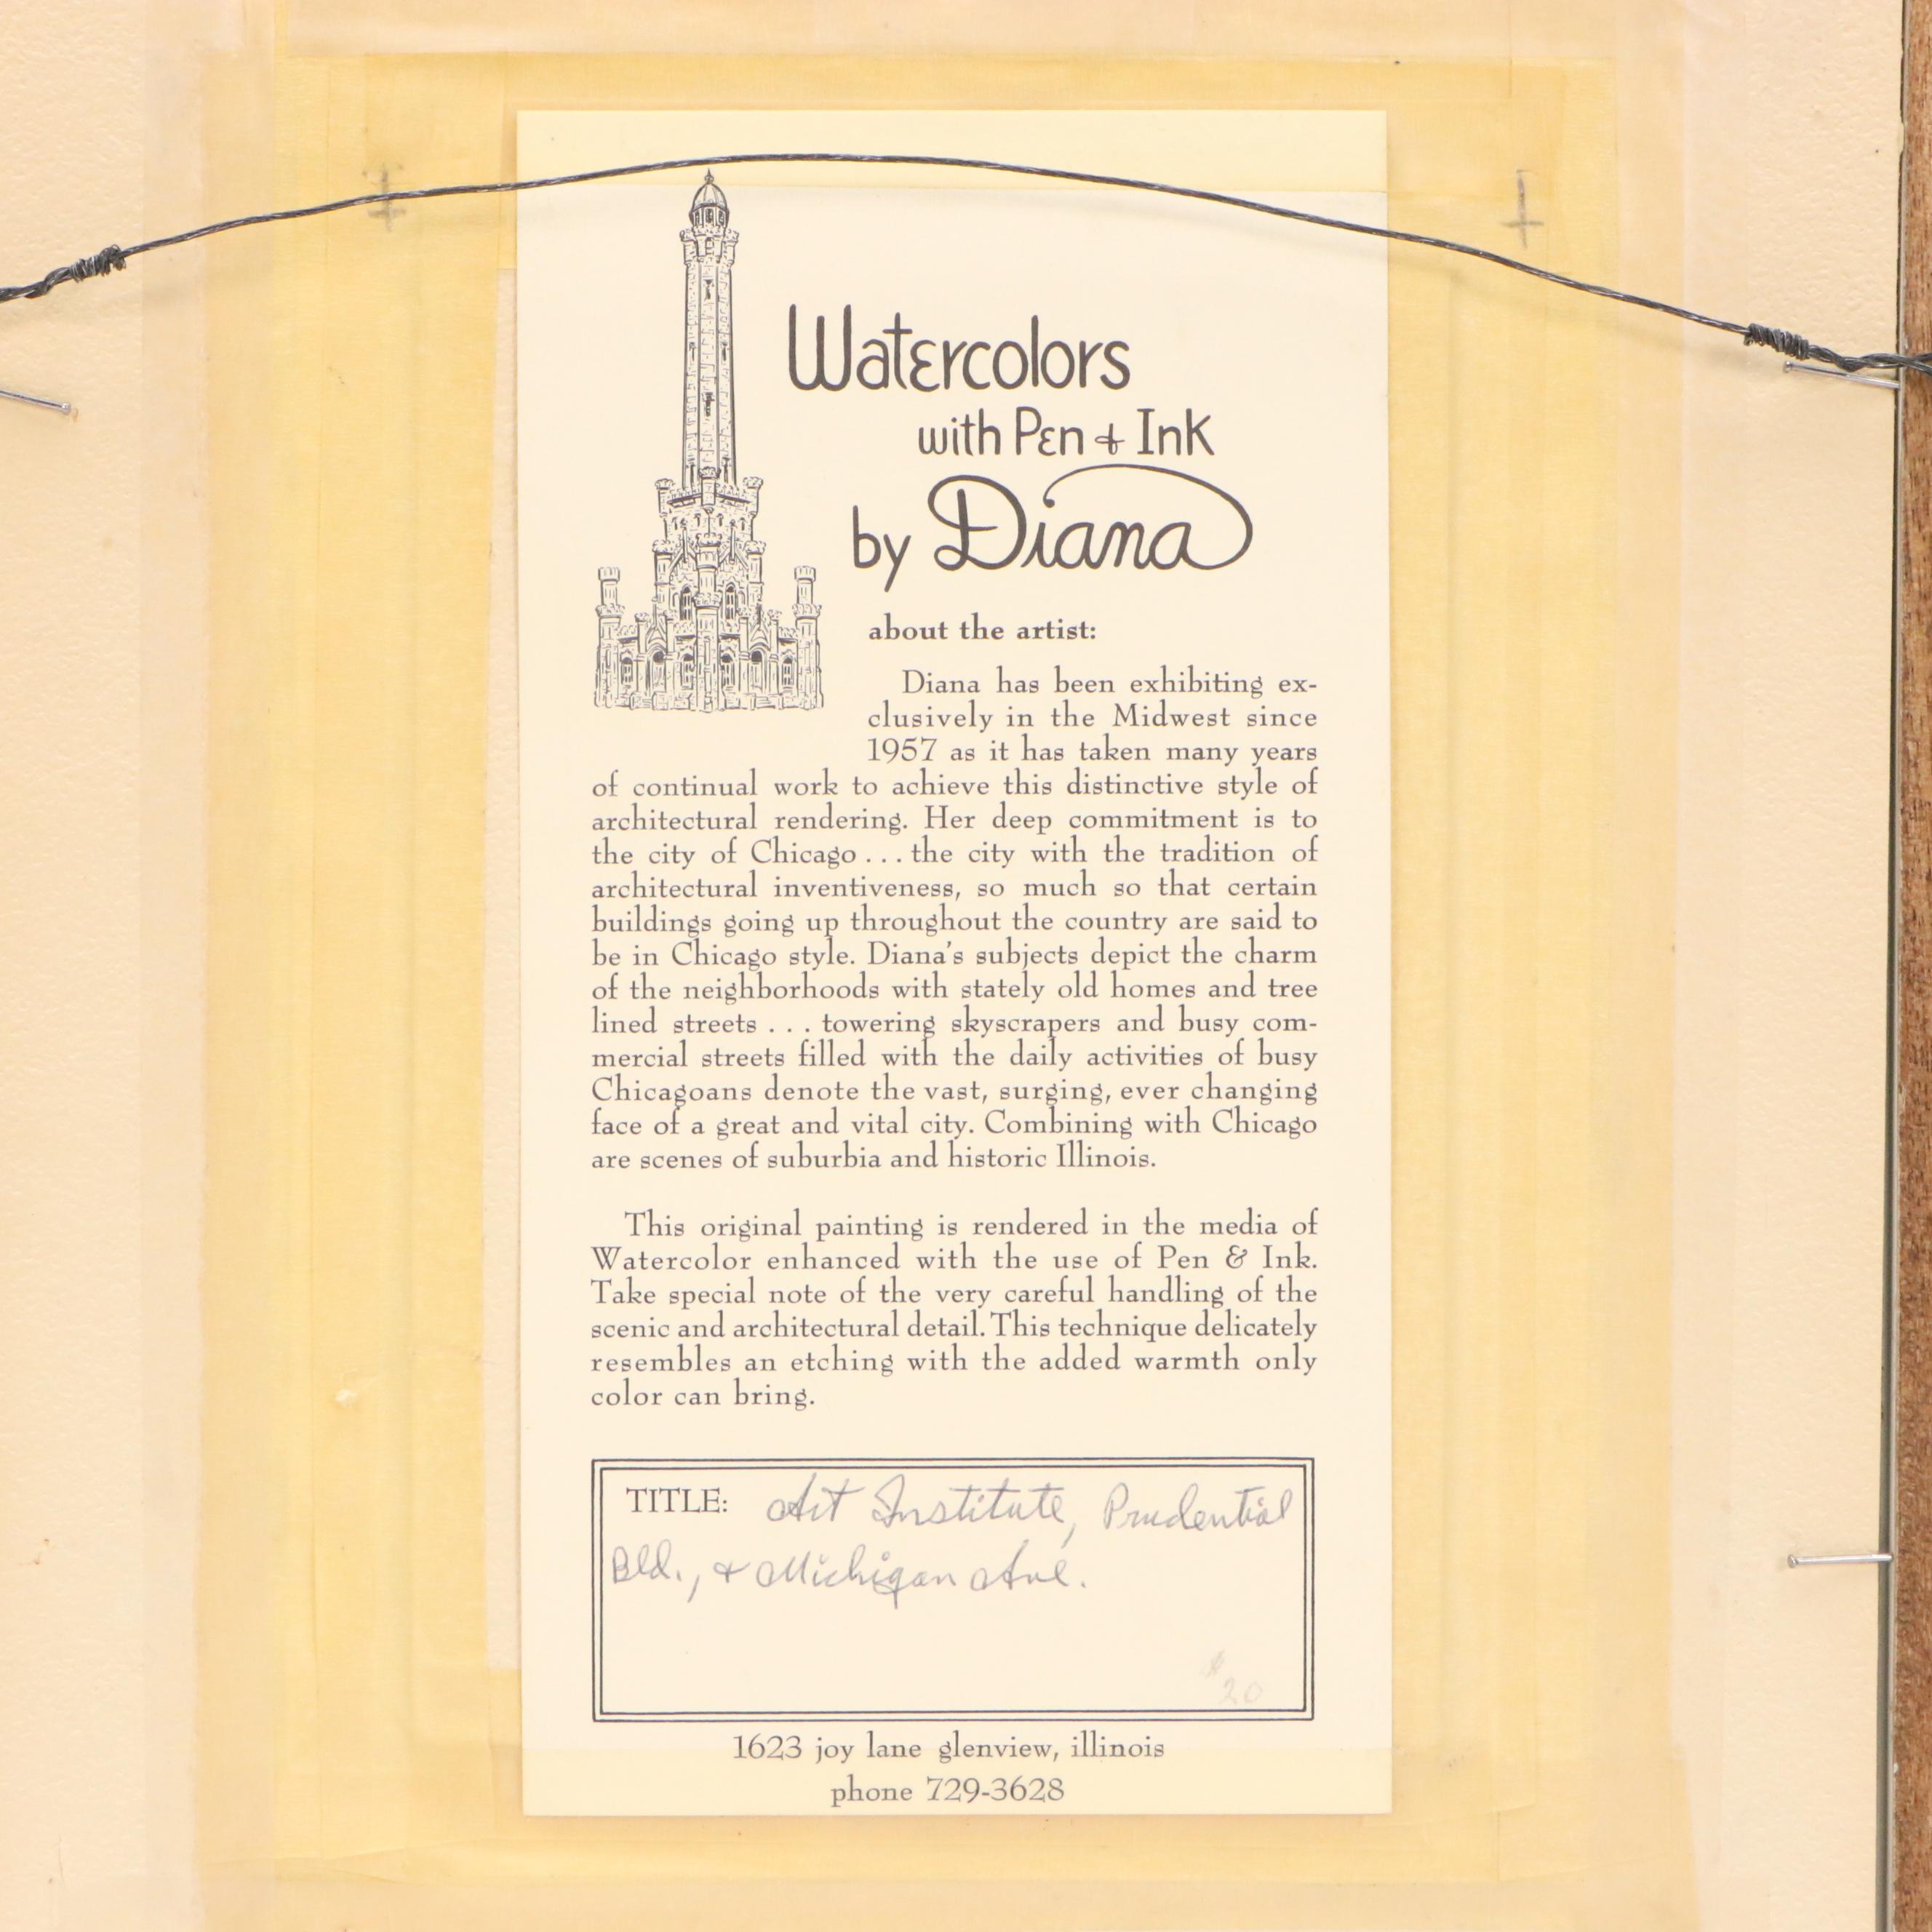 Watercolors
with Pen & Ink
by Diana
about the artist:
Diana has been exhibiting ex-
clusively in the Midwest since
1957 as it has taken many years
of continual work to achieve this distinctive style of
architectural rendering. Her deep commitment is to
the city of Chicago . . . the city with the tradition of
architectural inventiveness, so much so that certain
buildings going up throughout the country are said to
be in Chicago style. Diana's subjects depict the charm
of the neighborhoods with stately old homes and tree
lined streets . . . towering skyscrapers and busy com-
mercial streets filled with the daily activities of busy
Chicagoans denote the vast, surging, ever changing
face of a great and vital city. Combining with Chicago
are scenes of suburbia and historic Illinois.
This original painting is rendered in the media of
Watercolor enhanced with the use of Pen & Ink.
Take special note of the very careful handling of the
scenic and architectural detail. This technique delicately
resembles an etching with the added warmth only
color can bring.
TITLE: Art Institute, Prudential
Bld., & Michigan Ave.
$20
1623 joy lane glenview, illinois
phone 729-3628